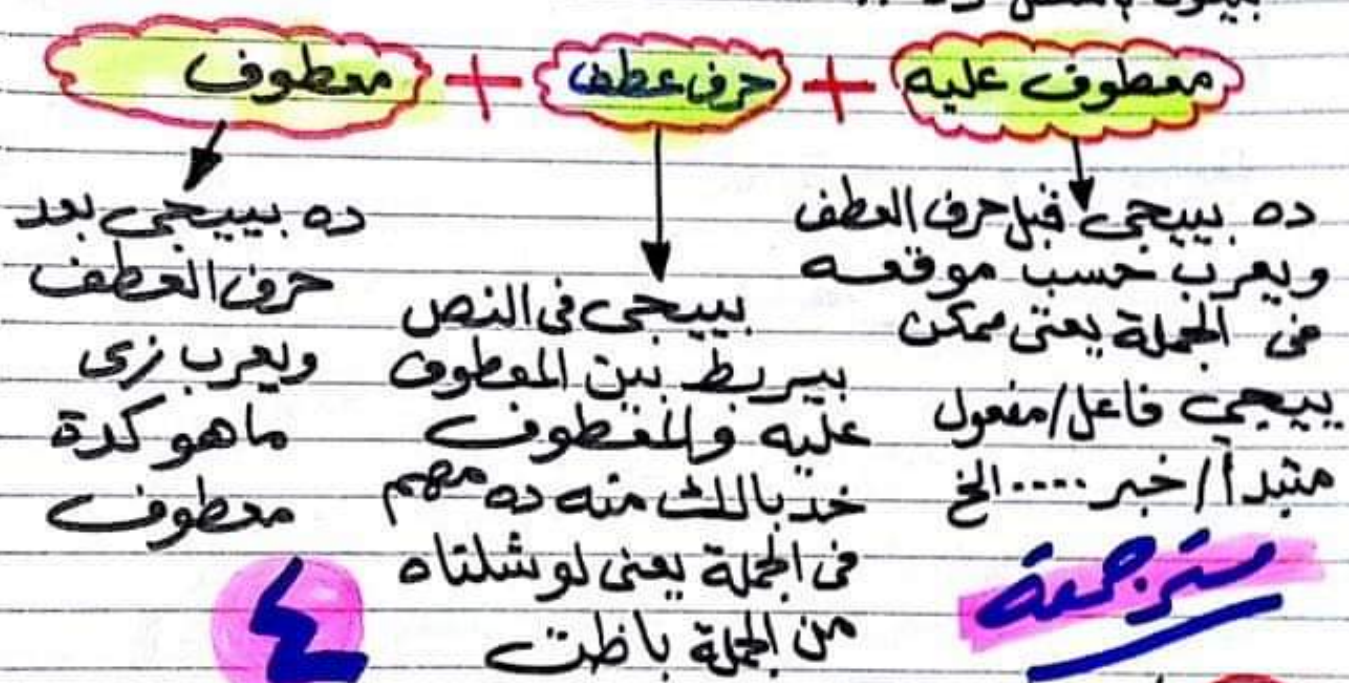 معطوف عليه + حرف عطف + معطوف
ده بييجى قبل حرف العطف
ويعرب حسب موقعه
فى الجملة يعنى ممكن
ييجى فاعل/مفعول
متبدأ/خبر....الخ
بييجى فى النص
بيربط بين المعطوف
عليه والمعطوف
خد بالك منه ده مهم
فى الجملة يعنى لو شلتاه
من الجملة باظت
ده بييجى بعد
حرف العطف
ويعرب زى
ماهو كدة
معطوف
٤